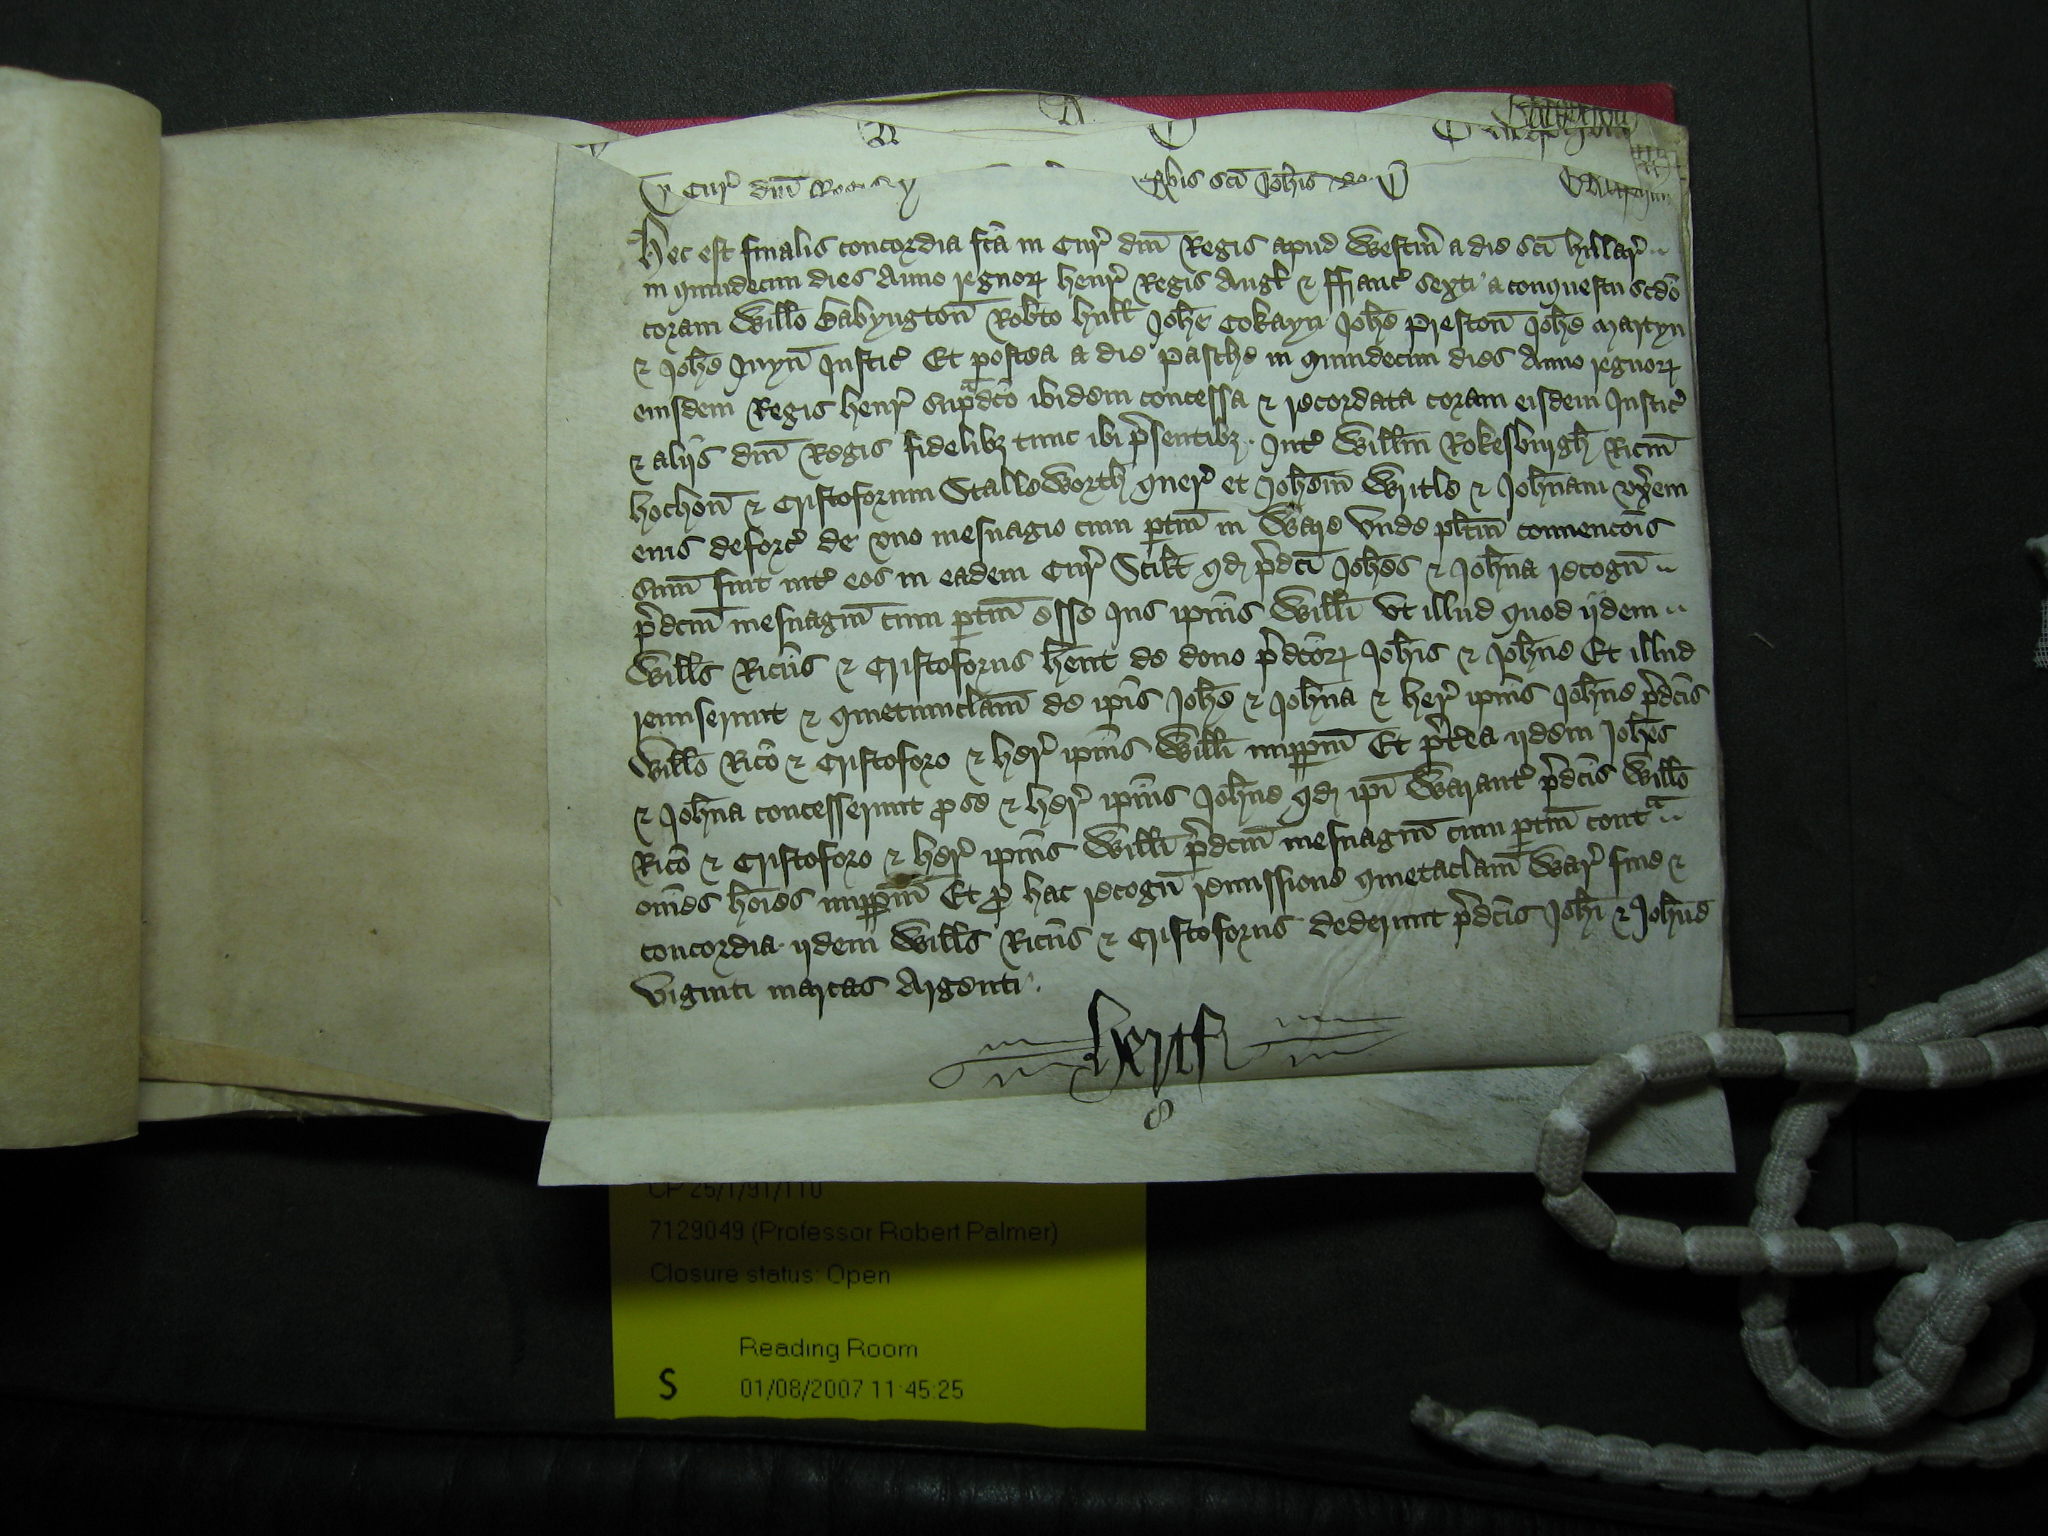 Cur̃ dn̄i
sc̄i Joh̄is
Hec est finalis concordia fc̄a in Cur̃ dn̄i Regis apud Westm̄ a die sc̄i Hillar̃
in quindecim dies Anno regnoꝝ Henr̃ Regis Angl̃ & ffranc̃ sexti a conquestu scd̄o
coram Will̄o Babyngton̄ Rob̄to Hull Joh̄e Cokayn Joh̄e Preston̄ Joh̄e Martyn
& Joh̄e Juyn̄ Justic̃ Et postea a die Pasche in quindecim dies Anno regnoꝝ
eiusdem Regis Henr̃ sup̲ᵃdc̄o ibidem concessa & recordata coram eisdem Justic̃
& aliis dn̄i Regis fidelibꝫ tunc ibi p̄sentibꝫ Int̃ Will̄m Rokesburgh Ric̄m
Hochon̄ & Cristoforum Stalleworth quer̃ et Joh̄em Writle & Joh̄nam vx̄em
eius deforc̃ de vno mesuagio cum ptin̄ in Ware Vnde pl̄itm̄ conuenc̄ois
sum̄ fuit int̃ eos in eadem Cur̃ Scil̄t qd̲ p̄dc̄i Joh̄es & Joh̄na recogn̄
p̄dcm̄ mesuagiū cum ptin̄ esse Jus ip̄ius Will̄i vt illud quod iidem
Will̄s Ric̄us & Cristoforus h̄ent de dono p̄dc̄oꝝ Joh̄is & Joh̄ne Et illud
remiserunt & quietumclam̄ de ip̄is Joh̄e & Joh̄na & her̃ ip̄ius Joh̄ne p̄dc̄is
Will̄o Ric̄o & Cristoforo & her̃ ip̄ius Will̄i imppm̄ Et p̄t̃ea iidem Joh̄es
& Joh̄na concesserunt ꝓ se & her̃ ip̄ius Joh̄ne qd̲ ip̄i Warant̃ p̄dc̄is Will̄o
Ric̄o & Cristoforo & her̃ ip̄ius Will̄i p̄dcm̄ mesuagiū cum ptin̄ contᵃ
om̄es ho̅ies imppm̄ Et ꝓ hac recogn̄ remissione quietaclam̄ War̃ fine &
concordia iidem Will̄s Ric̄us & Cristoforus dederunt p̄dc̄is Joh̄i & Joh̄ne
viginti marcas Argenti
Hertf
8
CP 25/1/91/110
7129049 (Professor Robert Palmer)
Closure status: Open
Reading Room
S 01/08/2007 11:45:25